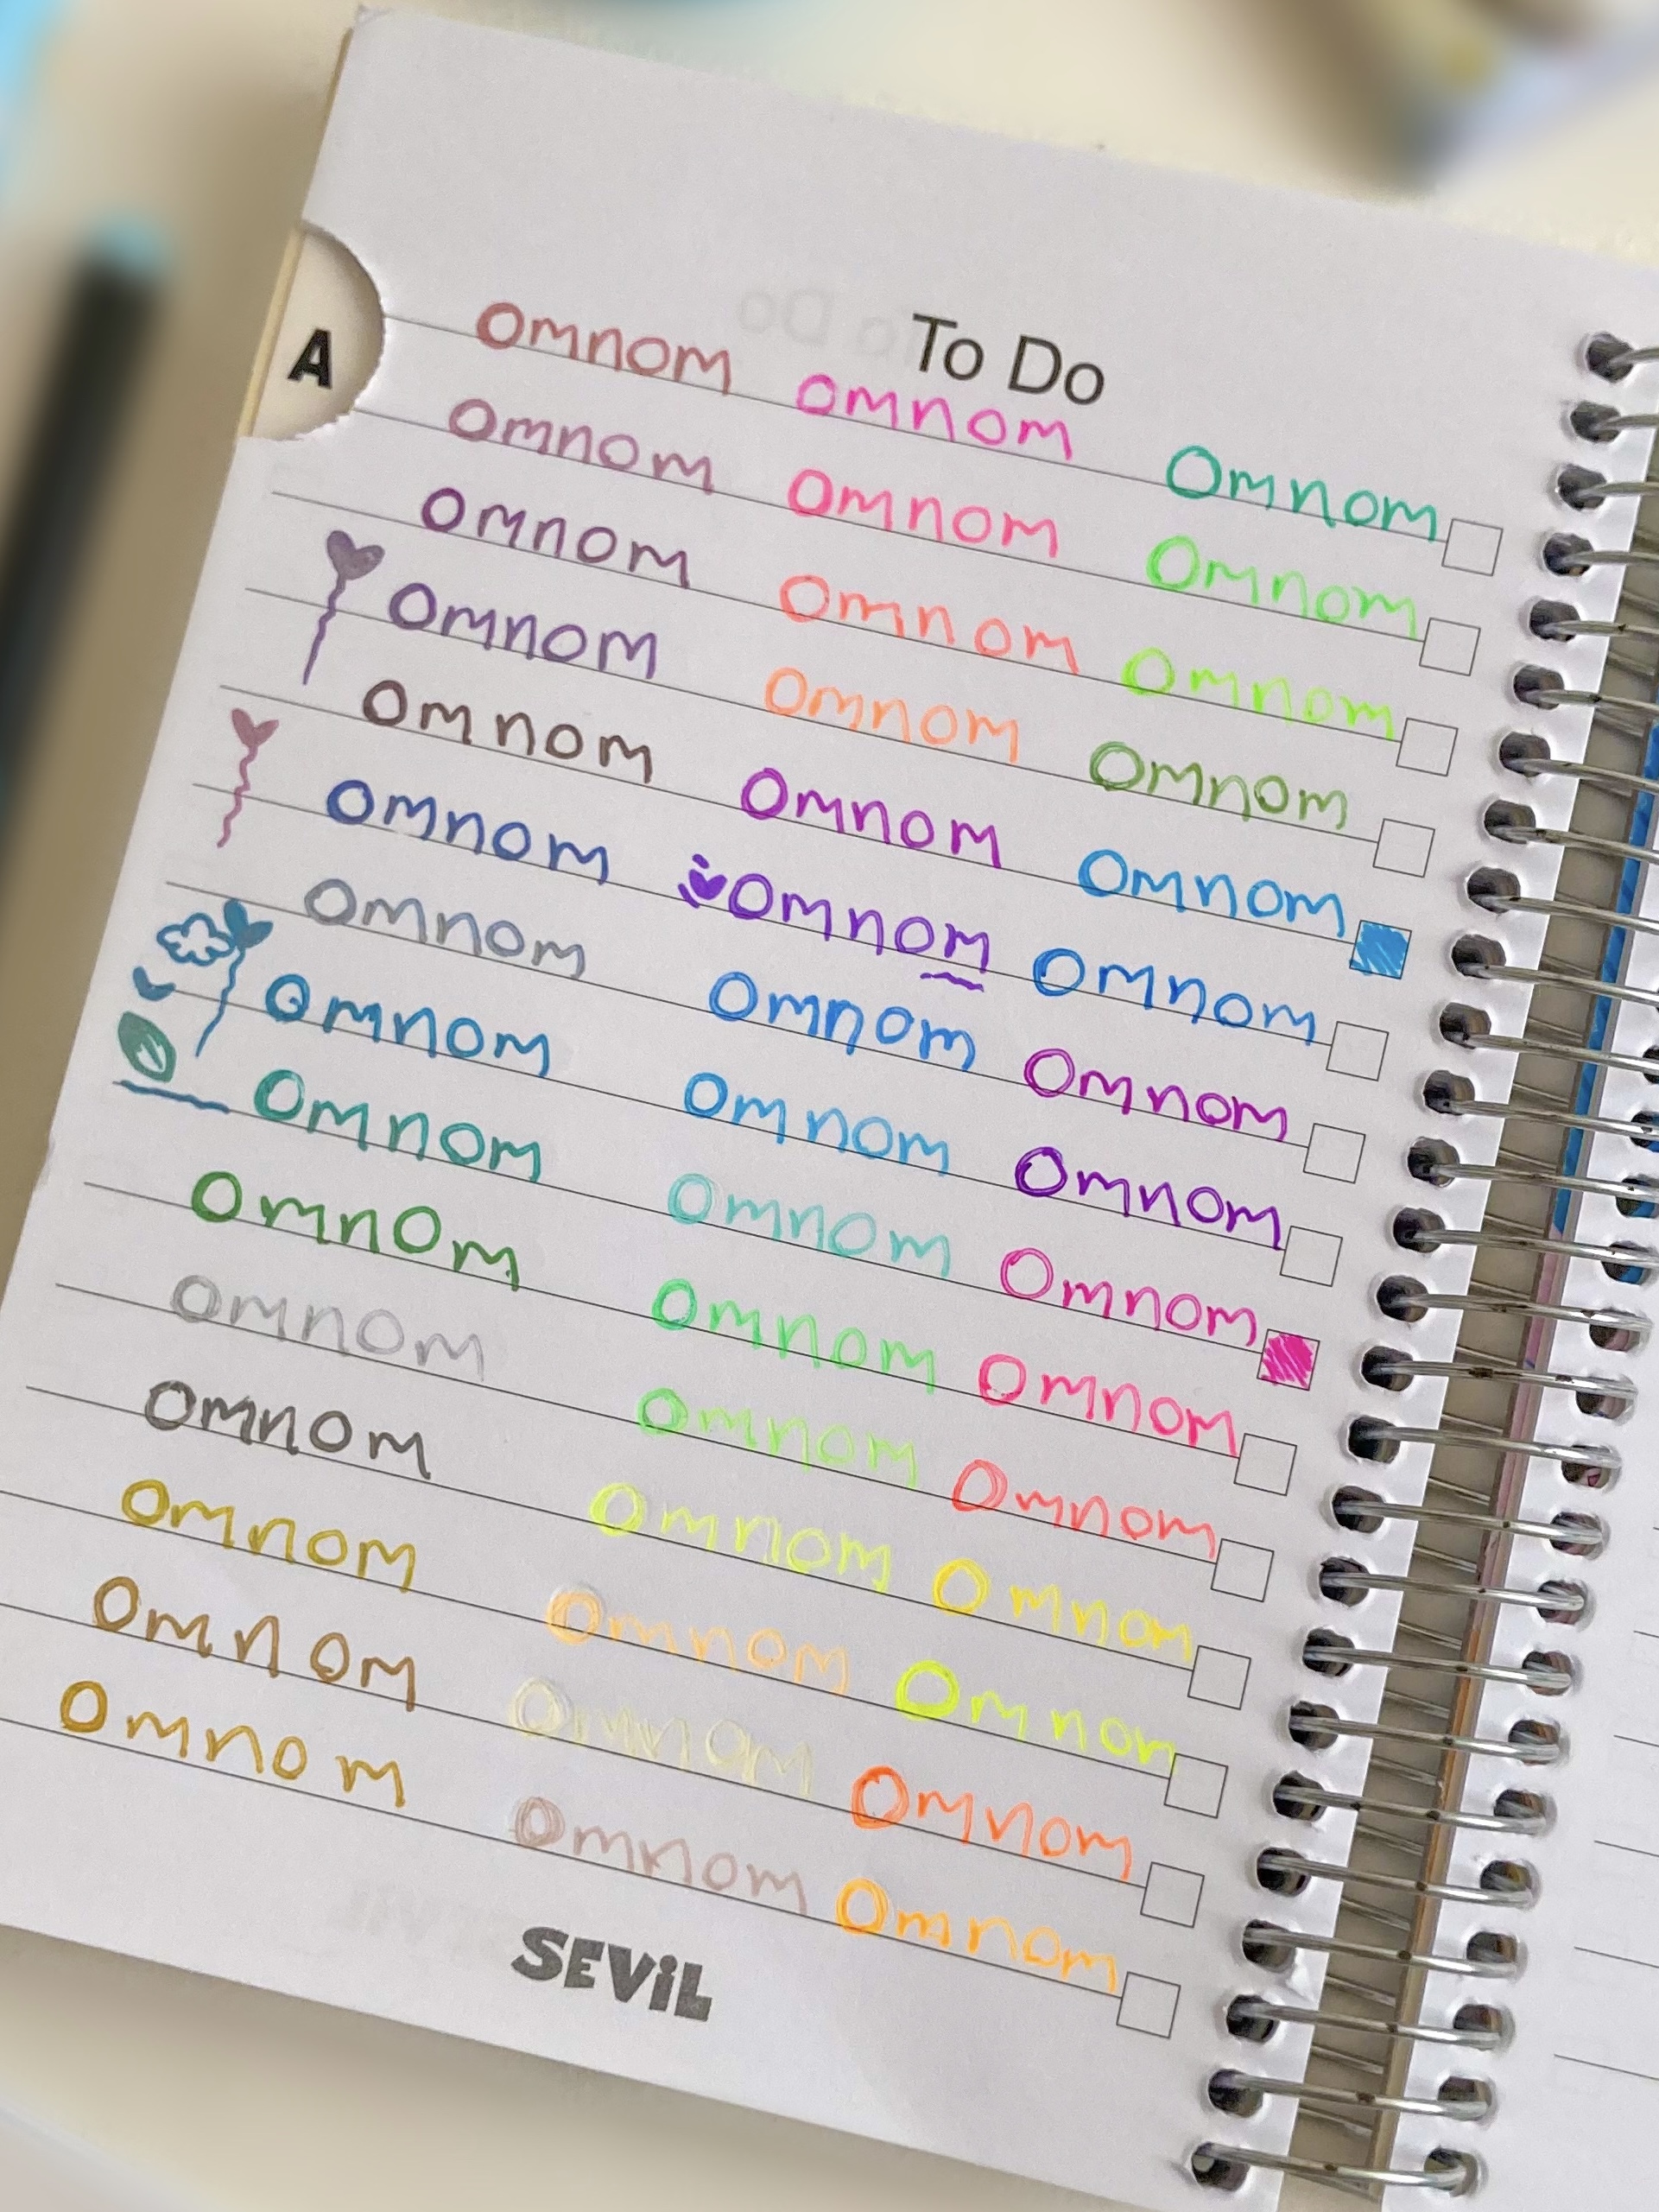 To Do
A
Omnom Omnom Omnom
Omnom Omnom Omnom
Omnom Omnom Omnom
Omnom Omnom Omnom
Omnom Omnom Omnom
Omnom Omnom Omnom
Omnom Omnom Omnom
Omnom Omnom Omnom
Omnom Omnom Omnom
Omnom Omnom Omnom
Omnom Omnom Omnom
Omnom Omnom Omnom
Omnom Omnom Omnom
Omnom Omnom Omnom
Omnom Omnom Omnom
SEViL